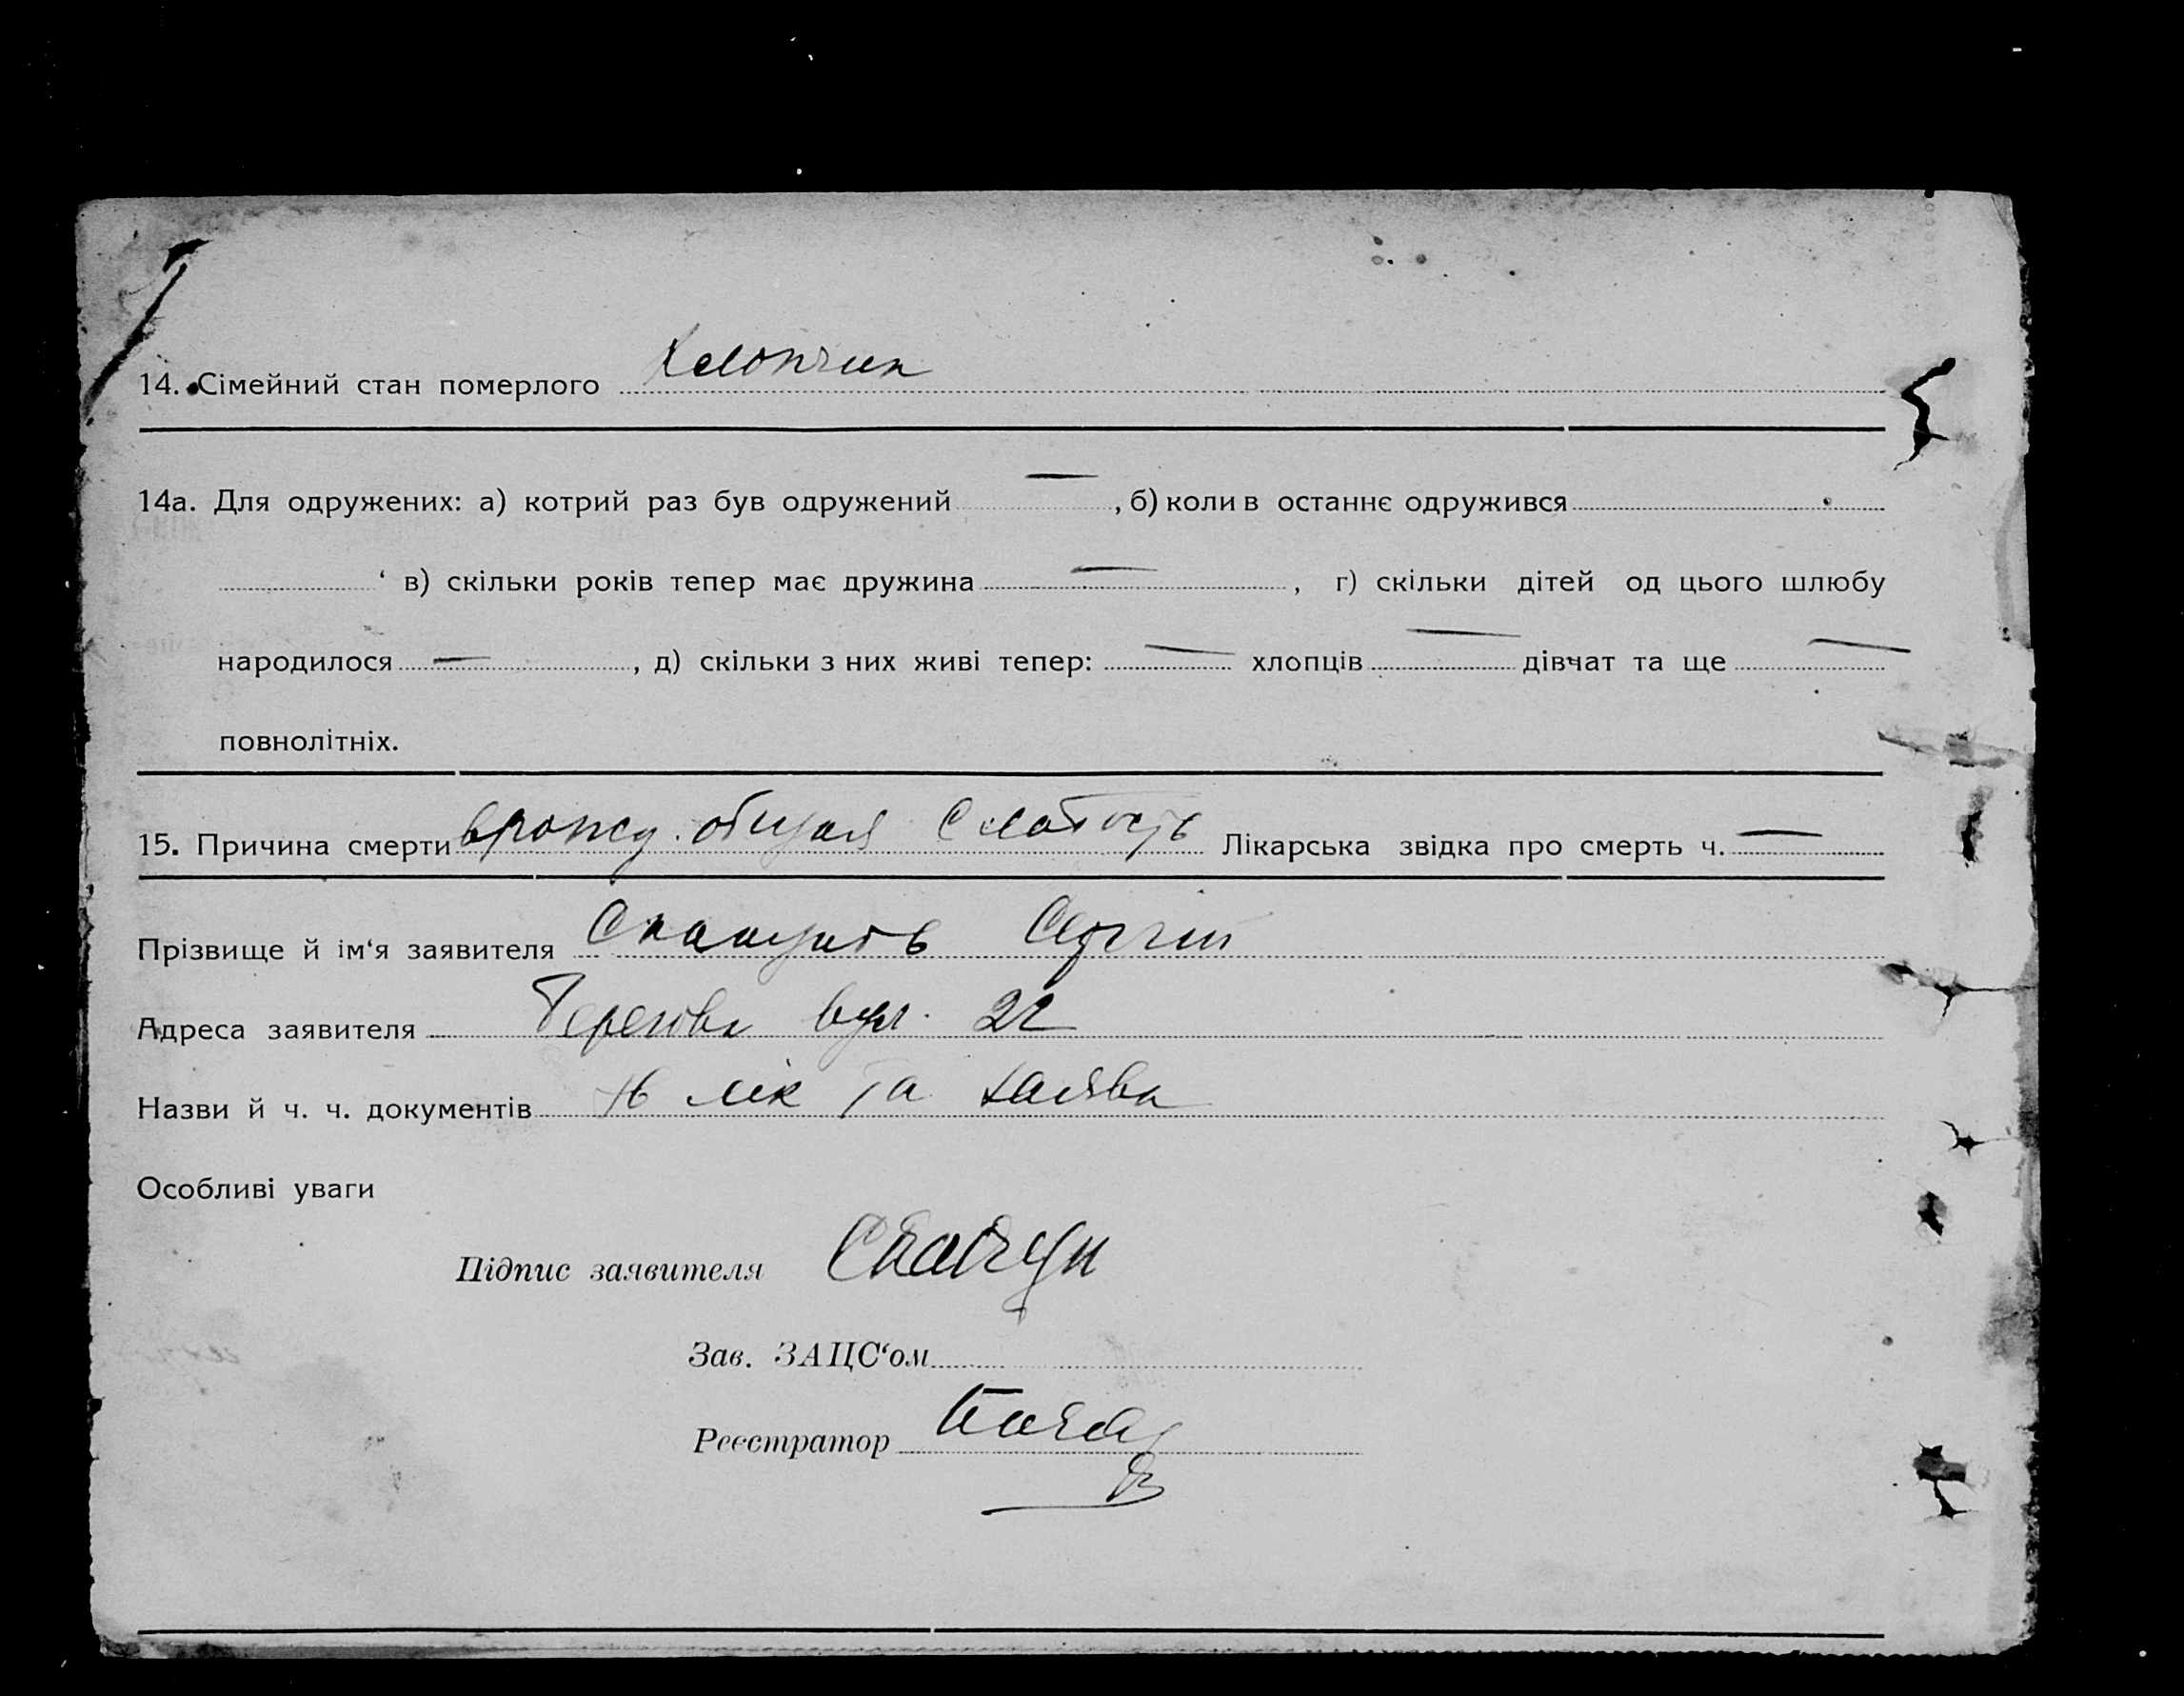 14. Сімейний стан померлого Хлопчик
14а. Для одружених: а) котрий раз був одружений — , б) коли в останнє одружився
‘ в) скільки років тепер має дружина — , г) скільки дітей од цього шлюбу
народилося — , д) скільки з них живі тепер: — хлопців — дівчат та ще —
повнолітніх.
15. Причина смерти врожд. общая слабость Лікарська звідка про смерть ч. —
Прізвище й ім‘я заявителя Сергій
Адреса заявителя вул. 22
Назви й ч. ч. документів лік та заява
Особливі уваги
Підпис заявителя
Зав. ЗАЦС‘ом
Реєстратор